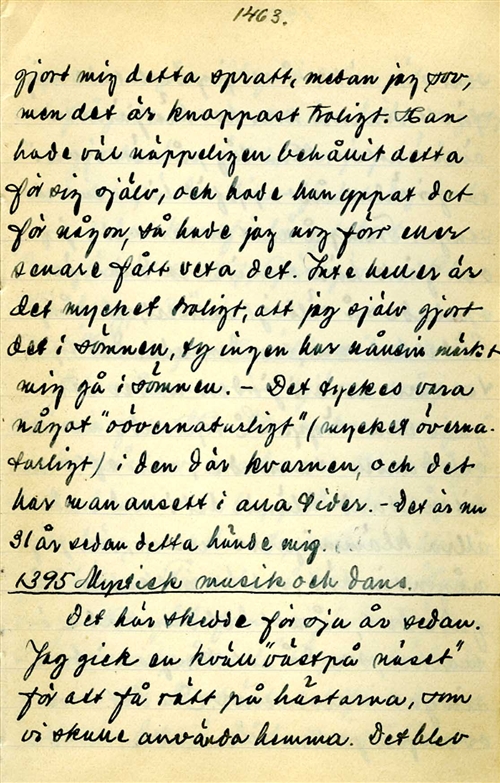 1463.
gjort mig detta spratt, medan jag sov,
men det är knappast troligt. Han
hade väl näppeligen behållit detta
för sig själv, och hade han yppat det
för någon, så hade jag nog förr eller
senare fått veta det. Inte heller är
det mycket troligt, att jag själv gjort
det i sömnen, ty ingen har nånsin märkt
mig gå i sömnen. - Det tyckes vara
något "oövernaturligt" (mycket överna-
turligt) i den där kvarnen, och det
har man ansett i alla tider. - Det är nu
31 år sedan detta hände mig.
1395 Mystisk musik och dans.
Det här skedde för sju år sedan.
Jag gick en kväll "västpå näset"
för att få rätt på hästarna, som
vi skulle använda hemma. Det blev